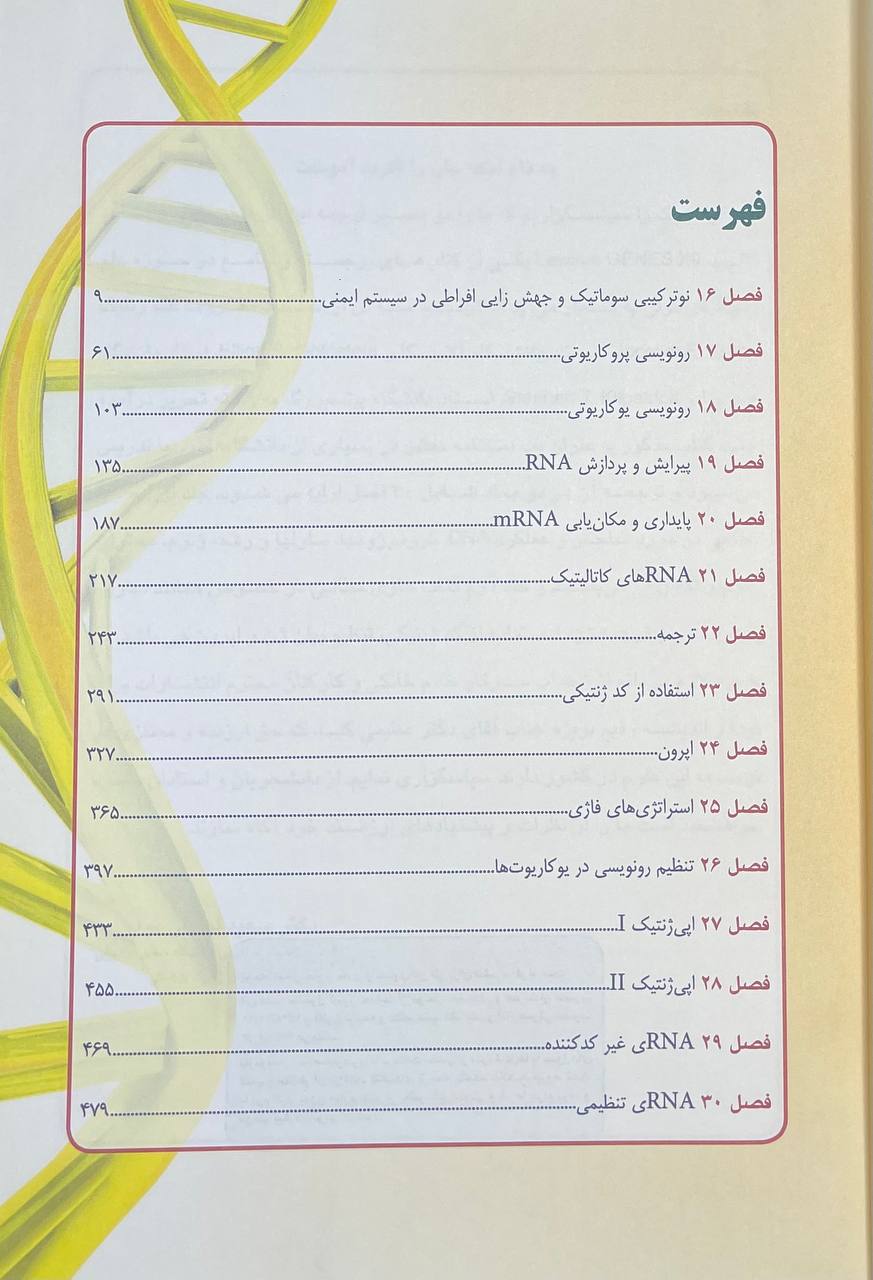 فهرست
فصل ۱۶ نوترکیبی سوماتیک و جهش زایی افراطی در سیستم ایمنی..............................۹
فصل ۱۷ رونویسی پروکاریوتی..............................۶۱
فصل ۱۸ رونویسی یوکاریوتی..............................۱۰۳
فصل ۱۹ پیرایش و پردازش RNA..............................۱۳۵
فصل ۲۰ پایداری و مکان‌یابی mRNA..............................۱۸۷
فصل ۲۱ RNAهای کاتالیتیک..............................۲۱۷
فصل ۲۲ ترجمه..............................۲۴۳
فصل ۲۳ استفاده از کد ژنتیکی..............................۲۹۱
فصل ۲۴ اپرون..............................۳۲۷
فصل ۲۵ استراتژی‌های فاژی..............................۳۶۵
فصل ۲۶ تنظیم رونویسی در یوکاریوت‌ها..............................۳۹۷
فصل ۲۷ اپی‌ژنتیک I..............................۴۳۳
فصل ۲۸ اپی‌ژنتیک II..............................۴۵۵
فصل ۲۹ RNAی غیر کدکننده..............................۴۶۹
فصل ۳۰ RNAی تنظیمی..............................۴۷۹